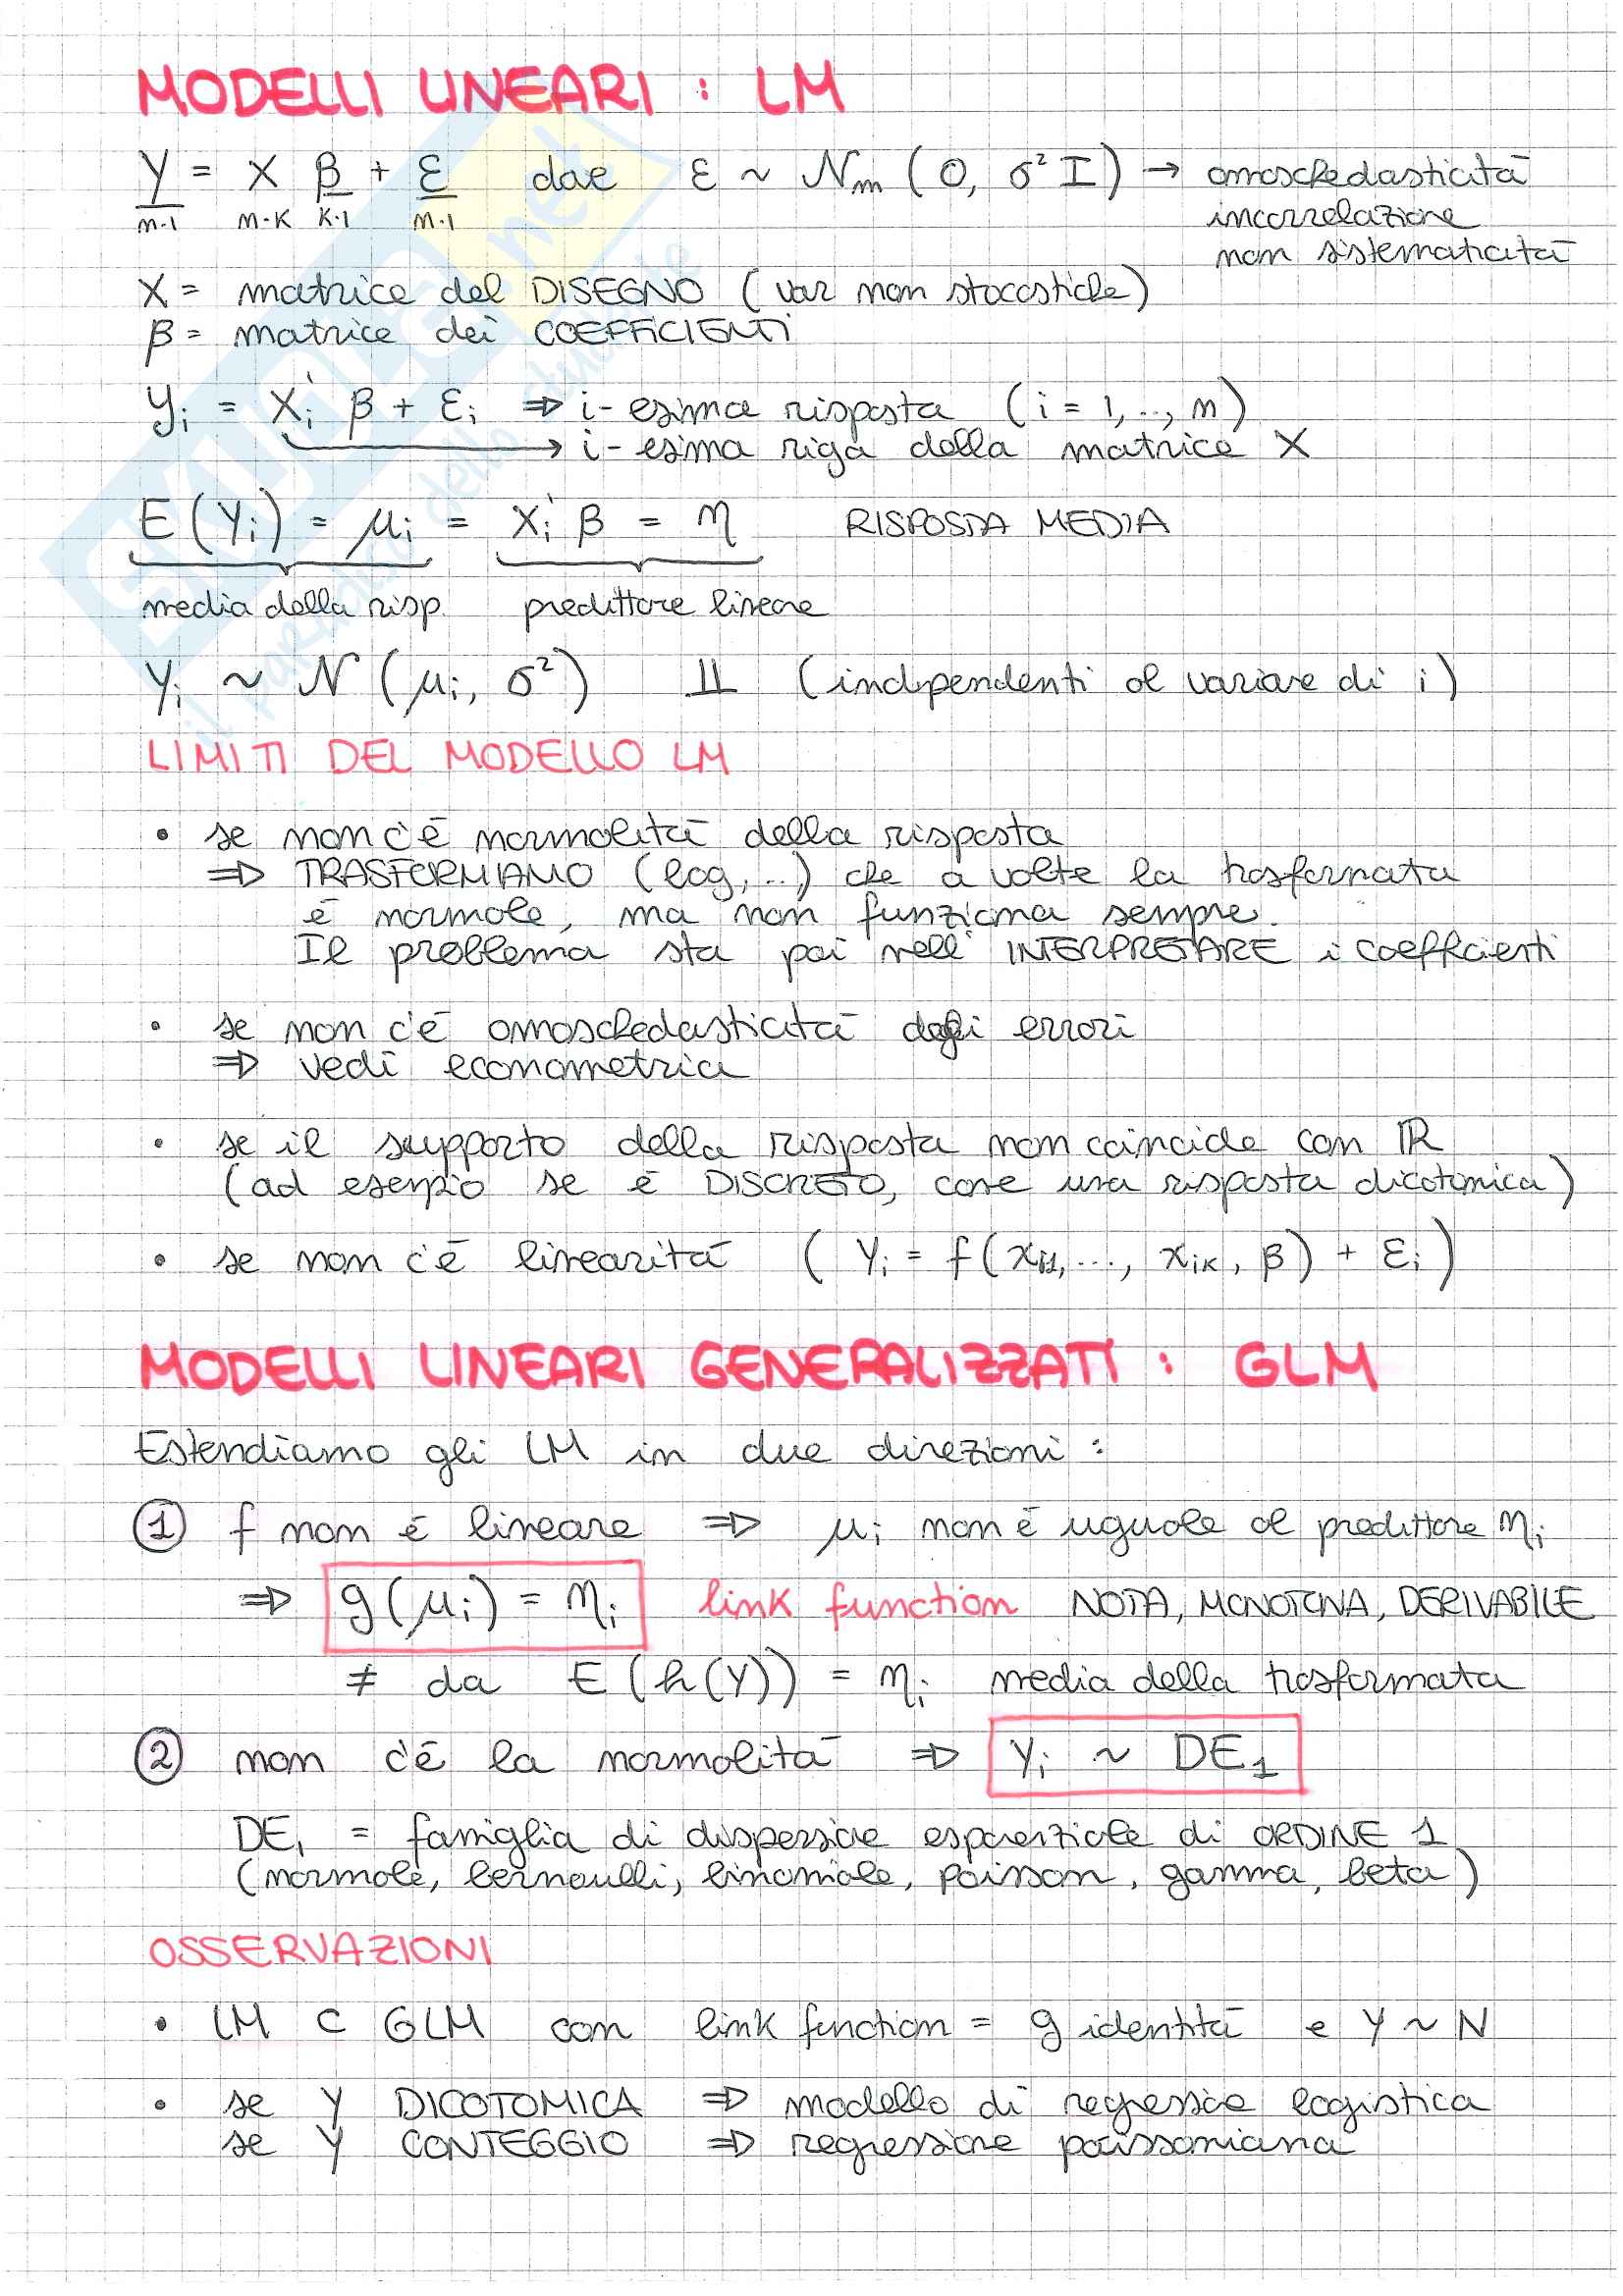 MODELLI LINEARI : LM
Y = X β + ε dove ε ~ Nn (0, σ² I) → omoschedasticità
n·1 n·K K·1 n·1 incorrelazione
non sistematicità
X = matrice del DISEGNO (var non stocastiche)
β = matrice dei COEFFICIENTI
yi = Xi' β + εi ⇒ i-esima risposta (i = 1, .., n)
→ i-esima riga della matrice X
E(Yi) = μi = Xi' β = η RISPOSTA MEDIA
media della risp. predittore lineare
Yi ~ N (μi, σ²) ⫫ (indipendenti al variare di i)
LIMITI DEL MODELLO LM
• se non c'è normalità della risposta
⇒ TRASFORMIAMO (log, ...) che a volte la trasformata
è normale, ma non funziona sempre.
Il problema sta poi nell' INTERPRETARE i coefficienti
• se non c'è omoschedasticità degli errori
⇒ vedi econometria
• se il supporto della risposta non coincide con ℝ
(ad esempio se è DISCRETO, come una risposta dicotomica)
• se non c'è linearità ( Yi = f(xi1, ..., xik, β) + εi )
MODELLI LINEARI GENERALIZZATI : GLM
Estendiamo gli LM in due direzioni :
① f non è lineare ⇒ μi non è uguale al predittore ηi
⇒ g(μi) = ηi link function NOTA, MONOTONA, DERIVABILE
≠ da E(h(Y)) = ηi media della trasformata
② non c'è la normalità ⇒ Yi ~ DE1
DE1 = famiglia di dispersione esponenziale di ORDINE 1
(normale, bernoulli, binomiale, poisson, gamma, beta)
OSSERVAZIONI
• LM ⊂ GLM con link function = g identità e Y ~ N
• se Y DICOTOMICA ⇒ modello di regressione logistica
se Y CONTEGGIO ⇒ regressione poissoniana